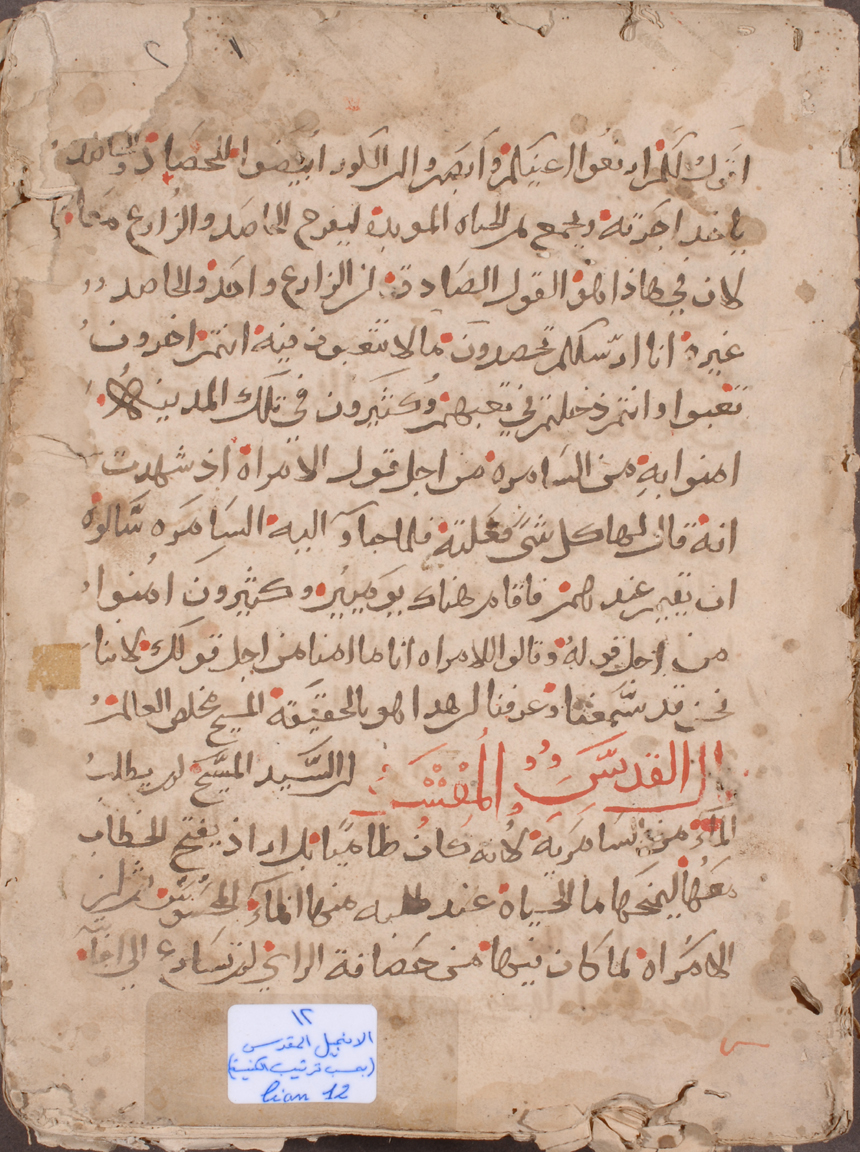 ٢ ١
اقول لكم ارفعوا اعينكم وابصروا الى الكور ابيضوا للحصاد والحاصد
ياخد اجرته ويجمع ثمر الحياه الموبده ليفرح الحاصد والزارع معا
لان في هاذا هو القول الصادق ان الزارع واحد والحاصد
غيره انا ارسلكم تحصدون ما لا تتعبون فيه انتم اخرون
تعبوا وانتم دخلتم في تعبهم وكثيرون في تلك المدينه
امنوا به من السامره من اجل قول الامراه اذ شهدت
انه قال لها كل شي فعلته فلما جاوا اليه السامره سالوه
ان يقيم عندهم فاقام هناك يوميين وكثيرون امنوا
من اجل قوله وقالوا للامراه انا ما امنا من اجل قولك لاننا
نحن قد سمعنا وعرفنا ان هدا هو بالحقيقه المسيح مخلص العالم
قال القديس المفسر ان السيد المسيح لم يطلب
الماء من السامريه لانه كان ظاميا بل اراد يفتح الخطاب
معها ليمنحها ما الحياه عند طلبه منها الماء المحسوس ثم ان
الامراه لما كان فيها من حصافة الراي لم تسارع الى
١٢
الانجيل المقدس
(بحسب ترتيب الكنيسة)
lian 12